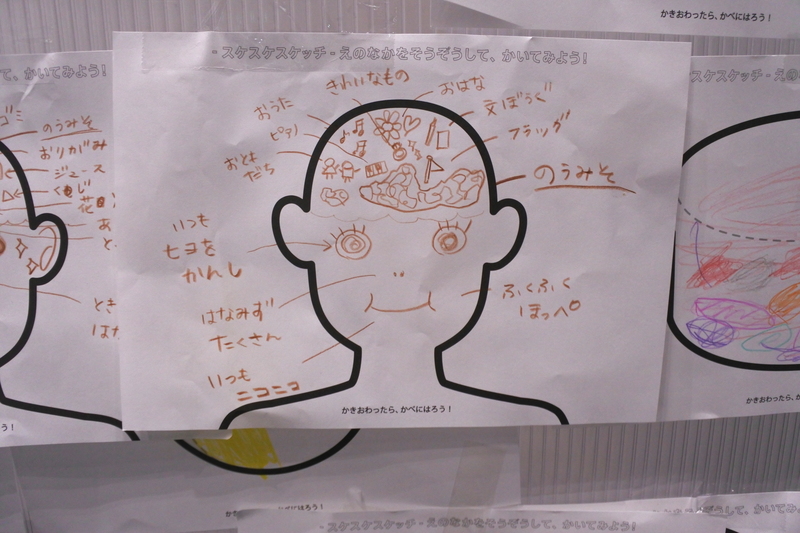 かきおわったら、かべにはろう！
- スケスケスケッチ - えのなかをそうぞうして、かいてみよう！
きれいなもの
おはな
おうた
文ぼうぐ
ピアノ
フラッグ
おともだち
のうみそ
いつも
ヒヨを
かんし
はなみず
たくさん
ふくふく
ほっぺ
いつも
ニコニコ
かきおわったら、かべにはろう！
て、かいてみよう！
のうみそ
おりがみ
ジュース
花
スケスケスケッチ - えのな
かきおわったら、か
- スケスケスケッチ - えのなかをそうぞうして、かいてみよう！